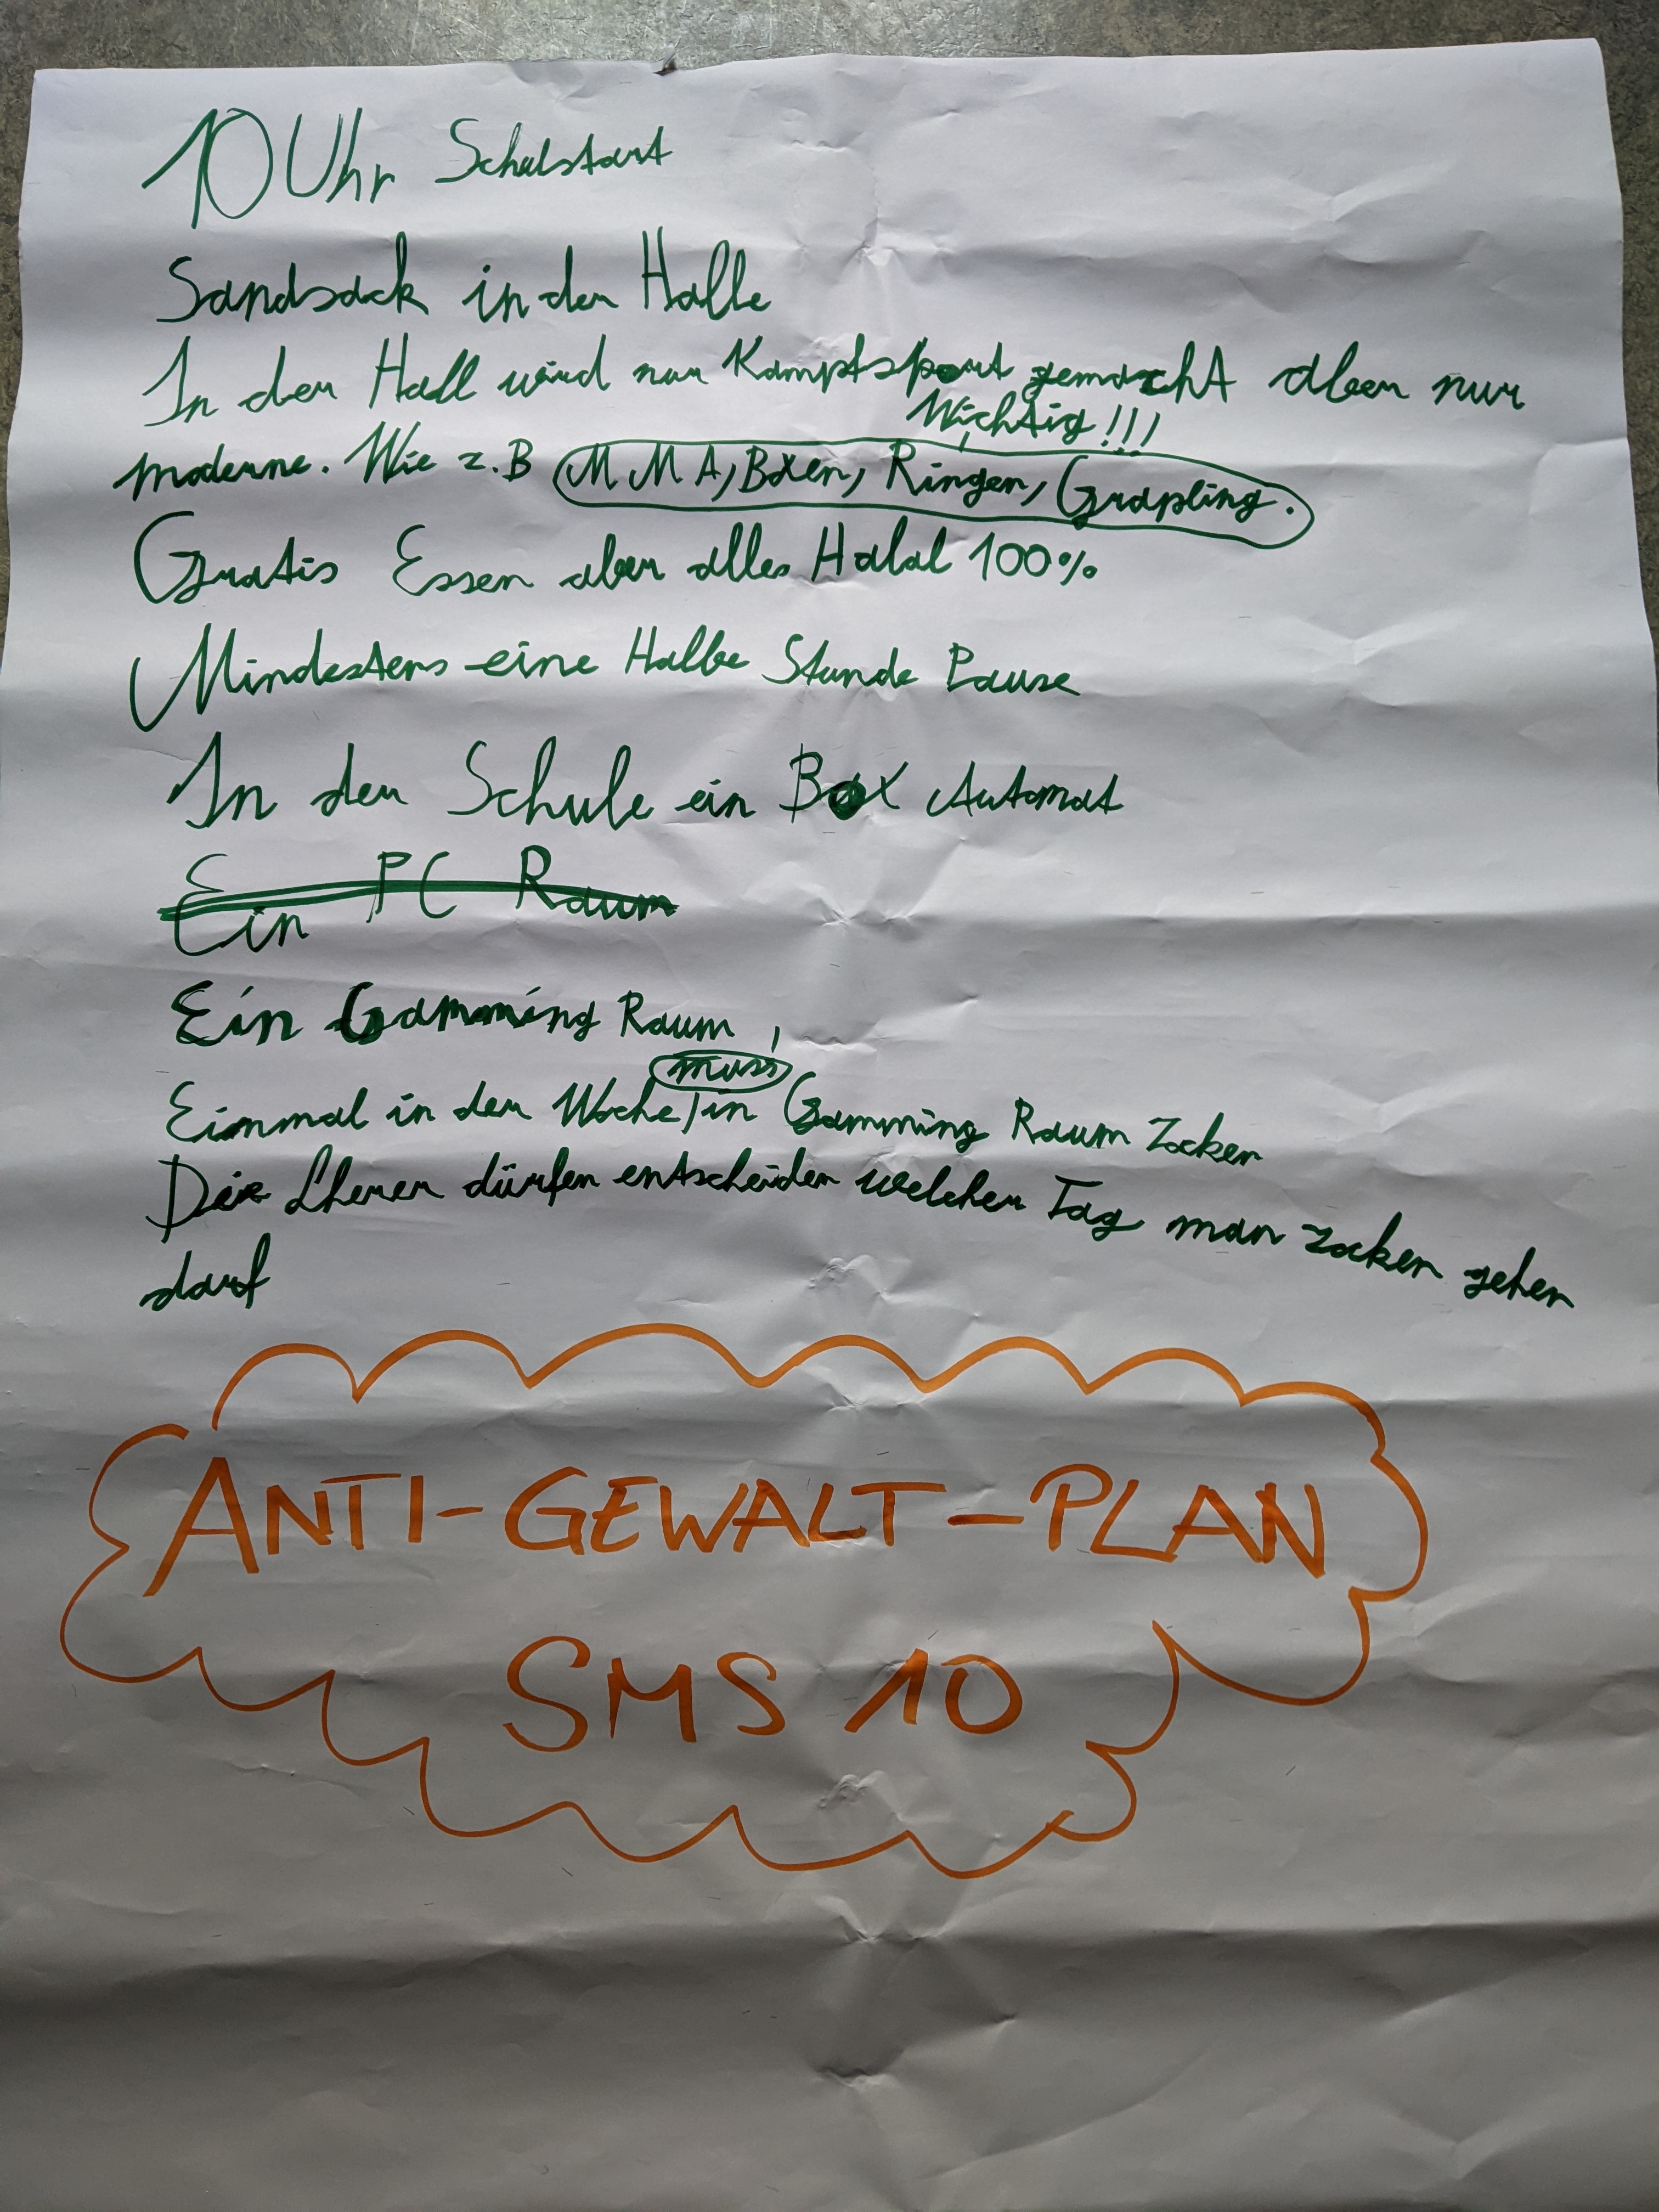 10 Uhr Schulstart
Sandsack in der Halle
In der Hall wird nur Kampfsport gemacht aber nur
Wichtig!!!
moderne. Wie z.B MMA, Boxen, Ringen, Grapling.
Gratis Essen aber alles Halal 100%
Mindestens eine Halbe Stunde Pause
In der Schule ein Box Automat
Ein PC Raum
Ein Gamming Raum,
muss
Einmal in der Woche in Gamming Raum Zocken
Die Lherer dürfen entscheiden welcher Tag man zocken gehen
darf
ANTI-GEWALT-PLAN
SMS 10